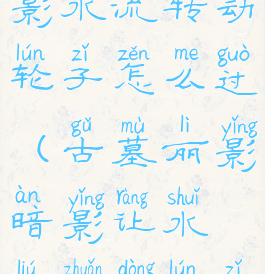 影水流转动
lún zǐ zěn me guò
轮子怎么过
gǔ mù lì yǐng
（古墓丽影
àn yǐng ràng shuǐ
暗影让水
liú zhuǎn dòng lún zǐ